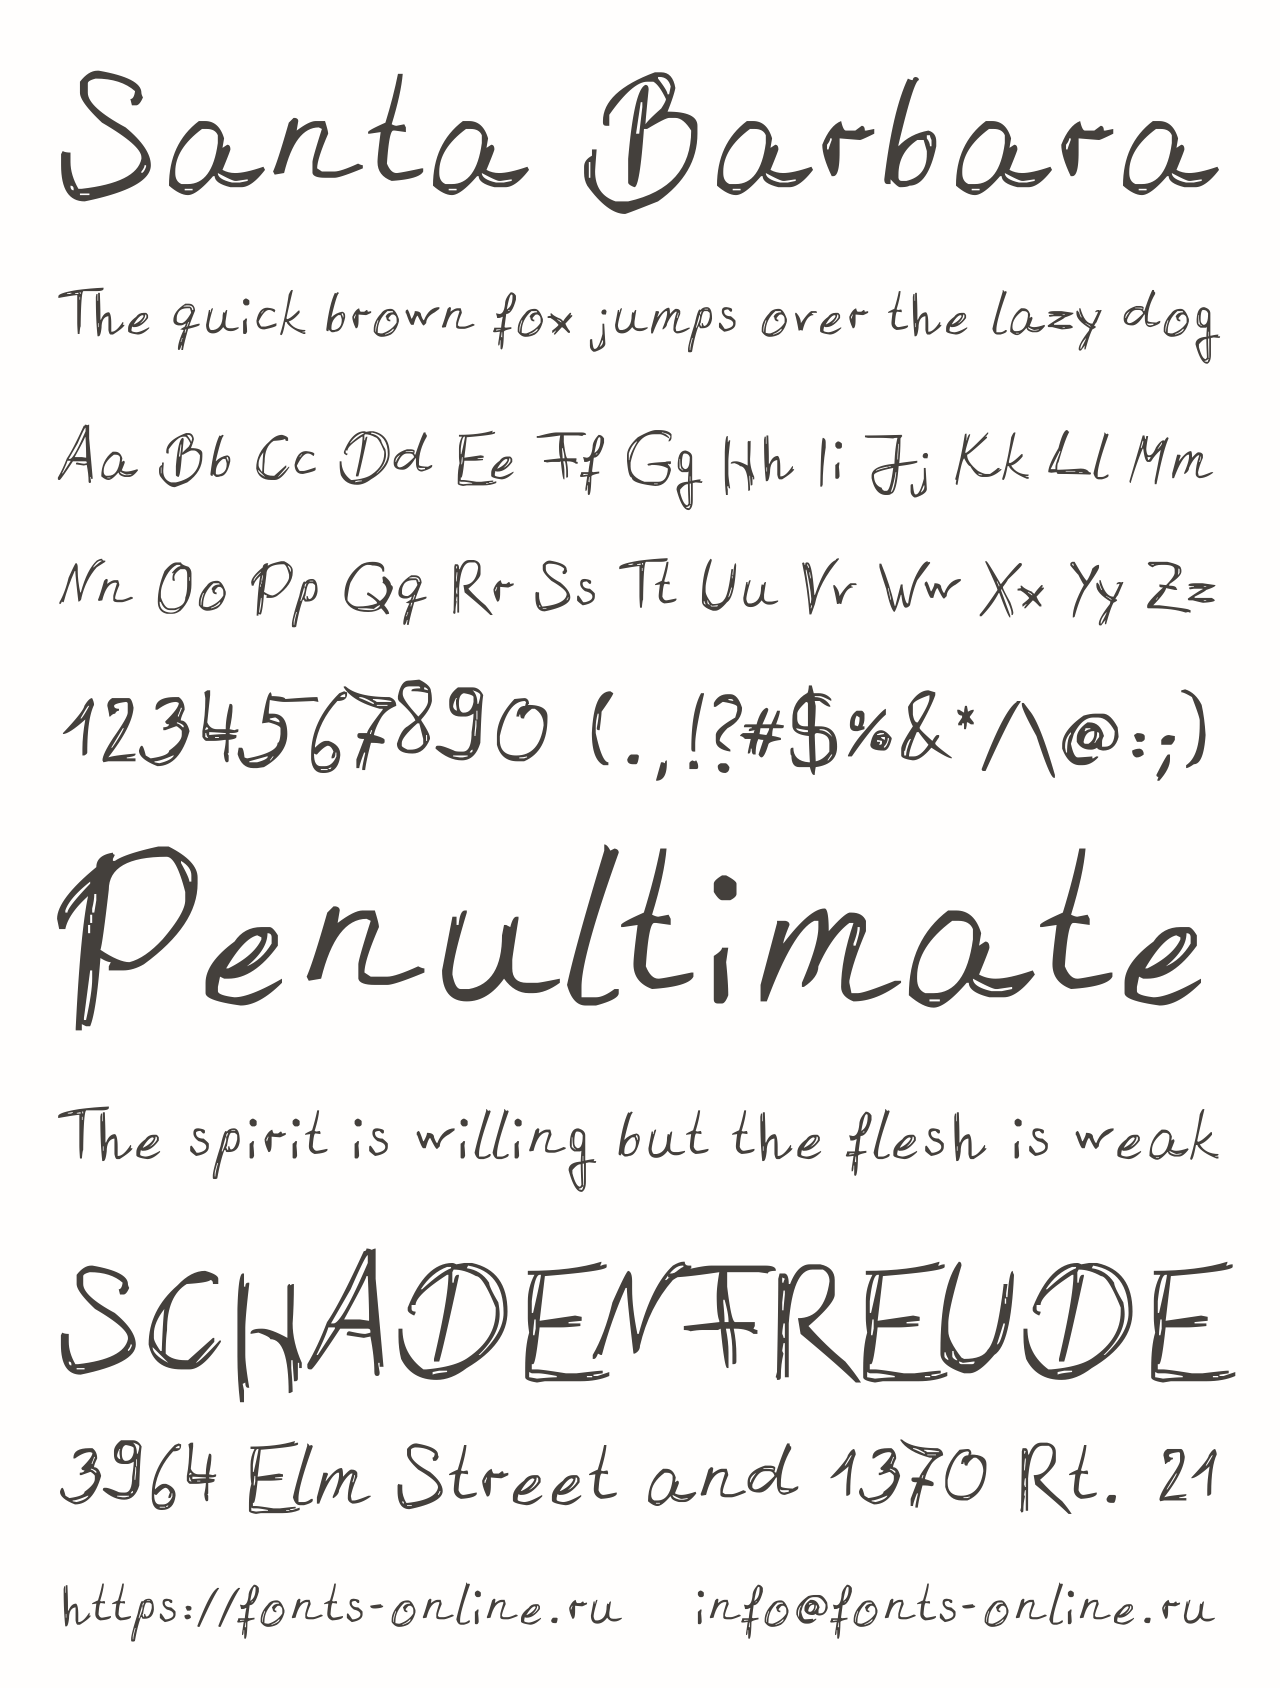 Santa Barbara
The quick brown fox jumps over the lazy dog
Aa Bb Cc Dd Ee Ff Gg Hh Ii Jj Kk Ll Mm
Nn Oo Pp Qq Rr Ss Tt Uu Vv Ww Xx Yy Zz
1234567890 (.,!?#$%&*/\@:;)
Penultimate
The spirit is willing but the flesh is weak
SCHADENFREUDE
3964 Elm Street and 1370 Rt. 21
https://fonts-online.ru info@fonts-online.ru